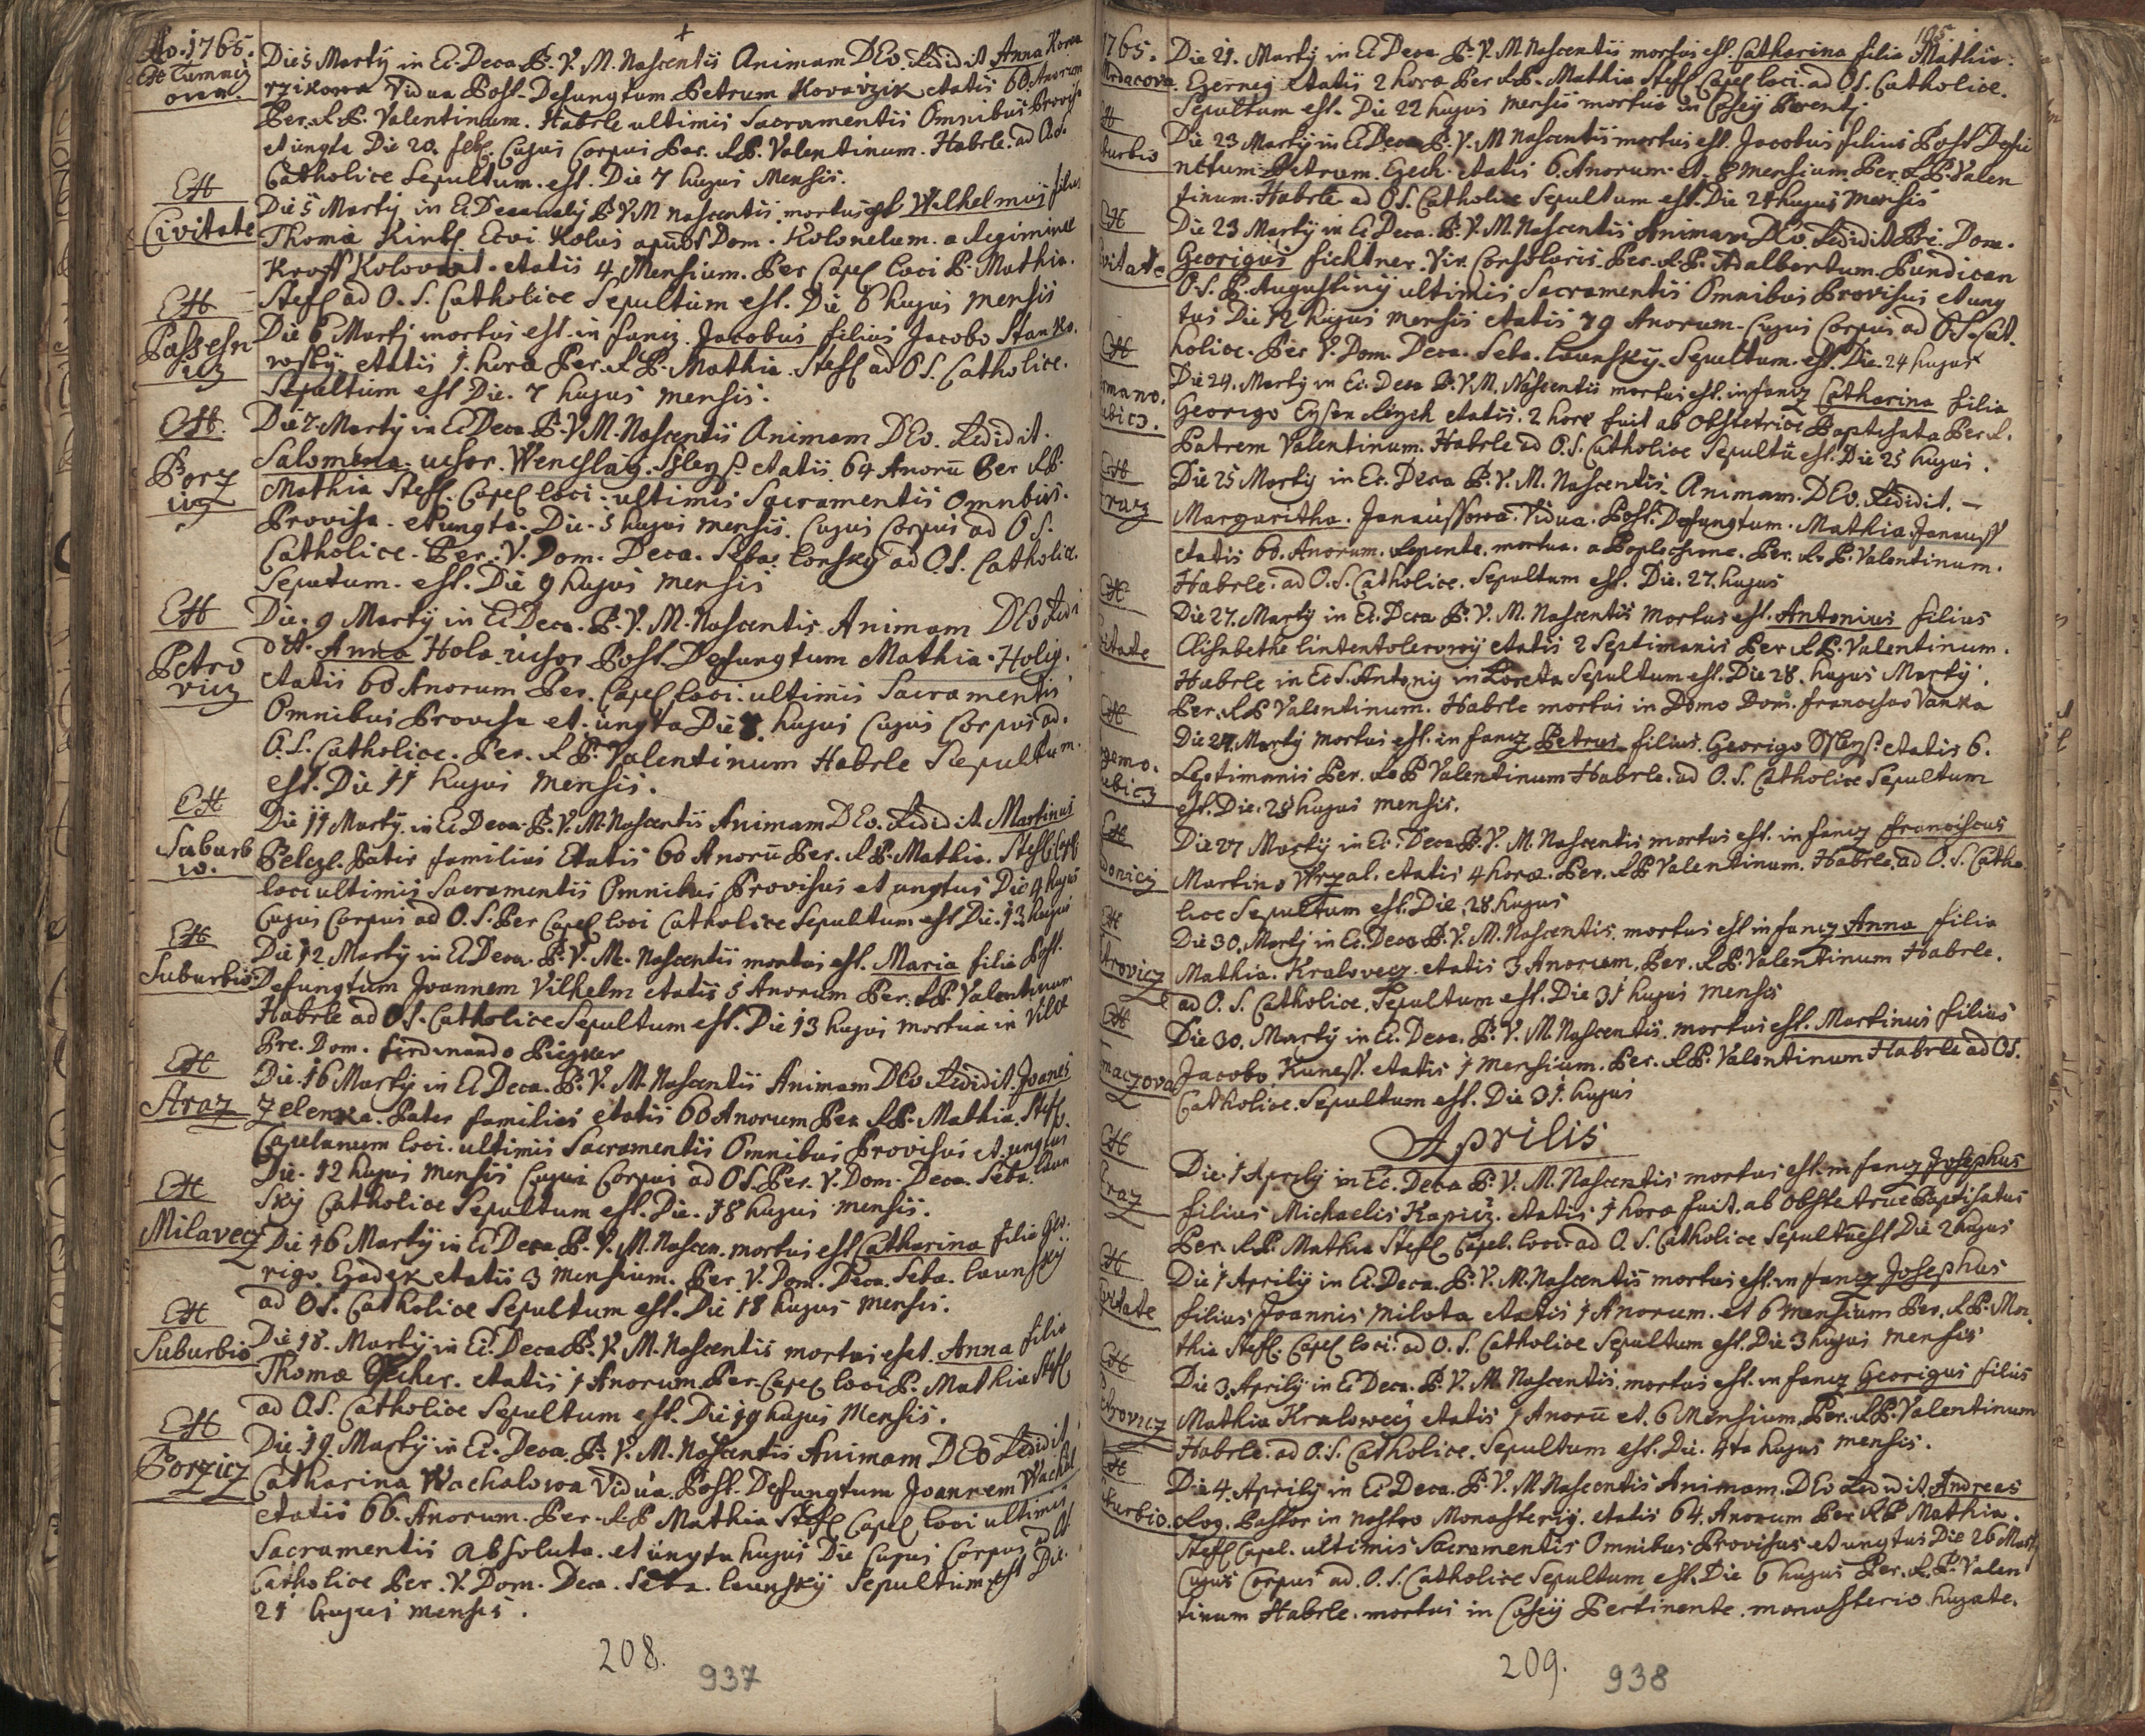 Ao. 1765.
Ex Tumacz
owa.
Die 5 Martÿ in Ec. Deca. B. V. M. Nascentis Animam DEo. Redidit Anna Kova
rzikowa Vidua Post. Defungtum Petrum Kovarzik etatis 60 Anorum
Per. R. P. Valentinum. Habrle ultimis Sacramentis Omnibus Provisa
et ungta Die 20. feb. Cujus Corpus Per. R. P. Valentinum. Habrle. ad O. S.
Catholice Sepultum. est. Die 7 hujus Mensis.
Ex
Civitate
Die 5 Martÿ in Ec. Decanalÿ B. V. M nascentis mortus est Wilhelmus filius
Thoma Kintl. apud Dom. Kolonelum. a Regimine
Kroff Kolowrat. etatis 4 Mensium. Per Capel loci P. Mathia.
Stefl ad O. S. Catholice Sepultum est. Die 6 hujus mensis
Ex
Passeszn
icz
Die 6 Martj mortus est. in fancz. Jacobus filius Jacobo Stanko.
wskÿ. etatis 1. hora Per. R. P. Mathia. Stefl ad O S. Catholice.
Sepultum est Die. 7 hujus mensis.
Ex
Porz
icz
Die 7. Martÿ in Ec Deca. B. V. M. Nascentis Animam DEo. Redidit.
Salomena. uchor. Wenchlaÿ. etatis 64 Anorū Per R P.
Mathia Stefl. Capel loci. ultimis Sacramentis omnibus.
Provisa. et ungta. Die. 5 hujus mensis. Cujus Corpus ad O S.
Catholice. Per. V. Dom. Deca. Seba. Lonskÿ ad O. S. Catholice.
Seputum. est. Die 9 hujus mensis
Ex
Petro
vicz
Die. 9 Martÿ in Ec Deca. B. V. M. Nascentis Animam DEo Redi
dit. Anna Hola uchor Post. Defungtum Mathia. Holÿ.
etatis 60 Anorum Per. Capel loci. ultimis Sacramentis
Omnibus Provisa et. ungta Die 8. hujus Cujus Corpus ad.
O. S. Catholice. Per. R. P. Valentinum Habrle Sepultum.
est. Die 11 hujus mensis.
Ex
Suburb
io.
Die 11 Martÿ. in Ec Deca. B. V. M. Nascentis Animam DEo. Redidit. Martinus
Pelczl. Pater familias Etatis 60 Anorū Per. R P. Mathia. Stefl. Capl
loci ultimis Sacramentis Omnibus Provisus et ungtus Die 4 hujus
Cujus Corpus ad O. S. Per Capel loci Catholice Sepultum est Die. 13 hujus
Ex
Suburbio
Die 12 Martÿ in Ec Deca. B. V. M. Nascentis mortus est. Maria filia Post.
Defungtum Joannem Vilhelm etatis 5 Anorum Per. R P. Valentinum
Habrle ad O. S. Catholice Sepultum est. Die 13 hujus mortua in Villa
Pre. Dom. ferdinando
Ex
Straz
Die. 16 Martÿ in Ec Deca. B. V. M. Nascentis Animam DEo Redidit. Joanes
Zelenka. Pater familias etatis 60 Anorum Per R P. Mathia. Stefl.
Capelanum loci. ultimis Sacramentis Omnibus Provisus et. ungtus.
Die. 12 hujus mensis Cujus Corpus ad O S. Per. V. Dom. Deca. Seba. Laun
Skÿ Catholice Sepultum est. Die. 18 hujus mensis.
Ex
Milavecz
Die 16 Martÿ in Ec Deca. B. V. M. Nascen. mortus est Catharina filia Geo.
rigo. Czadek etatis 3 mensium. Per V. Dom. Deca. Seba. Launskÿ
ad O S. Catholice Sepultum est. Die 18 hujus mensis.
Ex
Suburbio
Die 18. Martÿ in Ec. Deca B. V. M. Nascentis mortus est. Anna filia
Thoma etatis 1 Anorum Per. Capel loci P. Mathia Stefl
ad O. S. Catholice Sepultum est. Die 19 hujus Mensis.
Ex
Porzicz
Die. 19. Martÿ in Ec. Deca. B. V. M. Nascentis Animam DEo Redidit.
Catharina Wachalowa Vidua. Post. Defungtum Joannem Wachal
etatis 66. Anorum. Per. R. P Mathia Stefl Capel loci ultimis
Sacramentis absoluta. et ungta hujus Die Cujus Corpus ad O S
Catholice Per. V. Dom. Deca. Seba. Launskÿ Sepultum est Die.
21 hujus mensis.
208.
937
1765.
Mrdacova
Die 21. Martÿ in Ec Deca B. V. M. Nascentis mortus est. Catharina filia Mathia.
Czerneÿ etatis 2 hora Per R P. Mathia Stefl Capel loci. ad O S. Catholice.
Sepultum est. Die 22 hujus mensis mortua in
Ex
burbio
Die 23 Martÿ in Ec Deca. B. V. M Nascentis mortus est. Jacobus filius Post Defu
nctum Petrum. Czech. etatis 6. Anorum. et. 8 mensium. Per. R P. Valen
tinum. Habrle ad O S. Catholice Sepultum est. Die 24 hujus mensis
Ex
ivitate
Die 23 Martÿ in Ec Deca. B. V. M. Nascentis Animam DEo. Redidit Pre. Dom.
Georigus fichtner. Vir. Consolaris. Per. R. P. Adalbertum. Pundican
O. S. P. Augustinÿ ultimis Sacramentis Omnibus Provisus et ung
tus Die 12 hujus mensis etatis 79 Anorum. Cujus Corpus ad O. S. Cat.
holice. Per V. Dom. Deca. Seba. Launskÿ. Sepultum. est. Die. 24 hujus
Ex
rmano.
ubicz.
Die 24. Martÿ in Ec. Deca B. V. M. Nascentis mortus est. in fancz Catharina filia
Georigo etatis. 2 hore fuit ab Obstetrice Baptisata Per R.
Patrem Valentinum. Habrle ad O. S. Catholice Sepultū est. Die 25 hujus.
Ex
traz
Die 25 Martÿ in Ec. Deca B. V. M. Nascentis. Animam. DEo. Redidit. –
Margaritha. Janaussowa. Vidua. Post. Defungtum. Mathia. Janauss
etatis 60. Anorum. Repente. mortua. a Poplechione. Per. R. P. Valentinum.
Habrle. ad O. S. Catholice. Sepultum est. Die. 27. hujus
Ex
itate
Die 27. Martÿ in Ec. Deca B. V. M. Nascentis mortus est. Antonius filius
Elisabethe etatis 2 Septimanis Per R P. Valentinum.
Habrle in Ec S. Antonÿ in Loreta Sepultum est. Die 28. hujus Martÿ.
Per. R P Valentinum. Habrle mortus in Domo Dom. francisco Vanka
Ex
zemo.
ubicz
Die 27. Martÿ mortus est. in fancz Petrus filius. Georigo etatis 6.
Septimanis Per. R. P Valentinum Habrle. ad O. S. Catholice Sepultum
est. Die. 28 hujus mensis.
Ex
donicz
Die 27 Martÿ in Ec. Deca B. V. M. Nascentis mortus est. in fancz franciscus
Martino etatis 4 hora. Per. R P Valentinum. Habrle. ad O. S. Catho
lice Sepultum est. Die. 28. hujus
Ex
trovicz
Die 30. Martj in Ec. Deca B. V. M. Nascentis. mortus est in fancz Anna filia
Mathia. Kralovecz etatis 3 Anorum. Per. R P. Valentinum Habrle.
ad O. S. Catholice. Sepultum est. Die 31 hujus mensis
Ex
maczova
Die 30. Martÿ in Ec. Deca. B. V. M. Nascentis. mortus est. Martinus filius
Jacobo Kuness. etatis 1 mensium. Per. R. P. Valentinum Habrle ad O S.
Catholice. Sepultum est. Die 31. hujus
Aprilis
Ex
traz
Die. 1 Aprilÿ in Ec. Deca B. V. M. Nascentis mortus est. in fancz Josephus
filius Michaelis Kapicz. etatis 1 hora fuit. ab Obstetrice Baptisatus
Per. R P. Mathia Stefl Capel. loci. ad O. S. Catholice Sepultū est Die 2 hujus
Ex
ivitate
Die 1 Aprilÿ in Ec. Deca. B. V. M. Nascentis mortus est. in fancz Josephus
filius Joannis Milota etatis 1 Anorum. et 6 mensium Per. R. P. Ma.
thia Stefl. Capel loci. ad O. S. Catholice Sepultum est. Die 3 hujus mensis
Ex
etrovicz
Die 3. Aprilÿ in Ec Deca. B. V. M. Nascentis. mortus est. in fancz Georigus filius
Mathia Kralowecz etatis 1 Anorū et. 6 Mensium. Per. R P. Valentinum
Habrle. ad O. S. Catholice. Sepultum est. Die. 4ta hujus mensis.
Ex
burbio.
Die 4. Aprilÿ in Ec Deca. B. V. M Nascentis Animam. DEo Redidit. Andreas
Rog. Pastor in nostro Monasterÿ. etatis 64. Anorum Per R P Mathia.
Stefl Capel. ultimis Sacramentis Omnibus Provisus. et ungtus Die 26 Mart
Cujus Corpus ad. O. S. Catholice Sepultum est. Die 6 hujus Per. R. P. Valen
tinum Habrle. mortus in Casÿ Pertinente. monasterio hujate.
209.
938